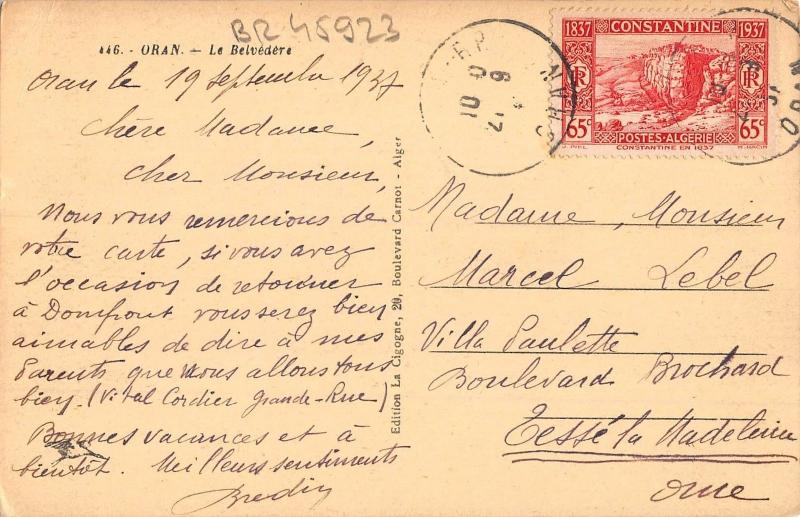 BR 45923
446. - ORAN. - Le Belvédère
Oran le 19 septembre 1937
Chère Madame,
Cher Monsieur,
Nous vous remercions de
votre carte, si vous avez
l'occasion de retourner
à Domfront vous serez bien
aimables de dire à mes
Parents que nous allons tous
bien. (Vital Cordier Grande-Rue)
Bonnes vacances et à
bientôt. Meilleurs sentiments
Bredin
Edition La Cigogne, 20, Boulevard Carnot - Alger
1837 CONSTANTINE 1937
RF RF
65c POSTES-ALGERIE 65c
CONSTANTINE EN 1837
ORAN
Madame, Monsieur
Marcel Lebel
Villa Paulette
Boulevard Brochard
Tessé la Madeleine
Orne